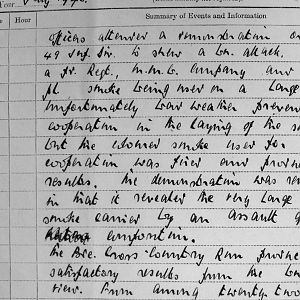 Hour
Hour
Summary of Events and Information
Officers attended a demonstration on
49 Inf. Div. to show a Bn. attack.
a Fd. Regt., M.M.G. Company and
pl. smoke being used on a large
Unfortunately bad weather preven
cooperation in the laying of the s
but the coloured smoke used for
cooperation was fired and prove
results. The demonstration was
in that it revealed the very large
smoke carried by an assault
composition.
The Bde. Cross-Country Run prove
satisfactory results from the
view. From among twenty two